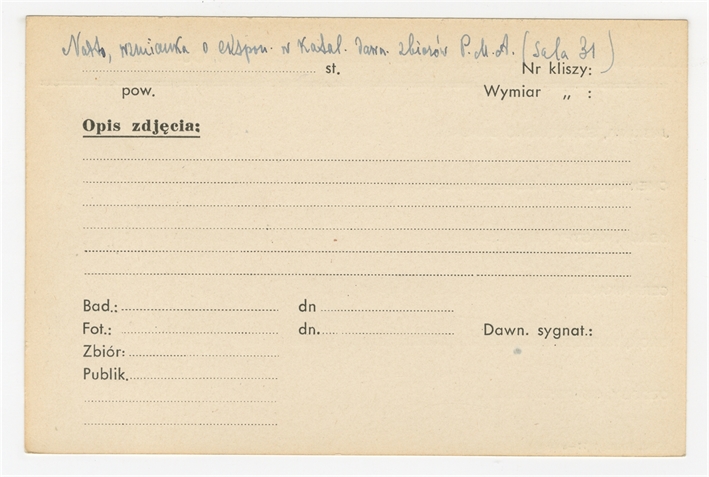 Nakło, wzmianka o ekspon. w Katal. dawn. zbiorów P.M.A. (Sala 31)
st. Nr kliszy:
pow. Wymiar „ :
Opis zdjęcia:
Bad.: dn
Fot.: dn. Dawn. sygnat.:
Zbiór:
Publik.